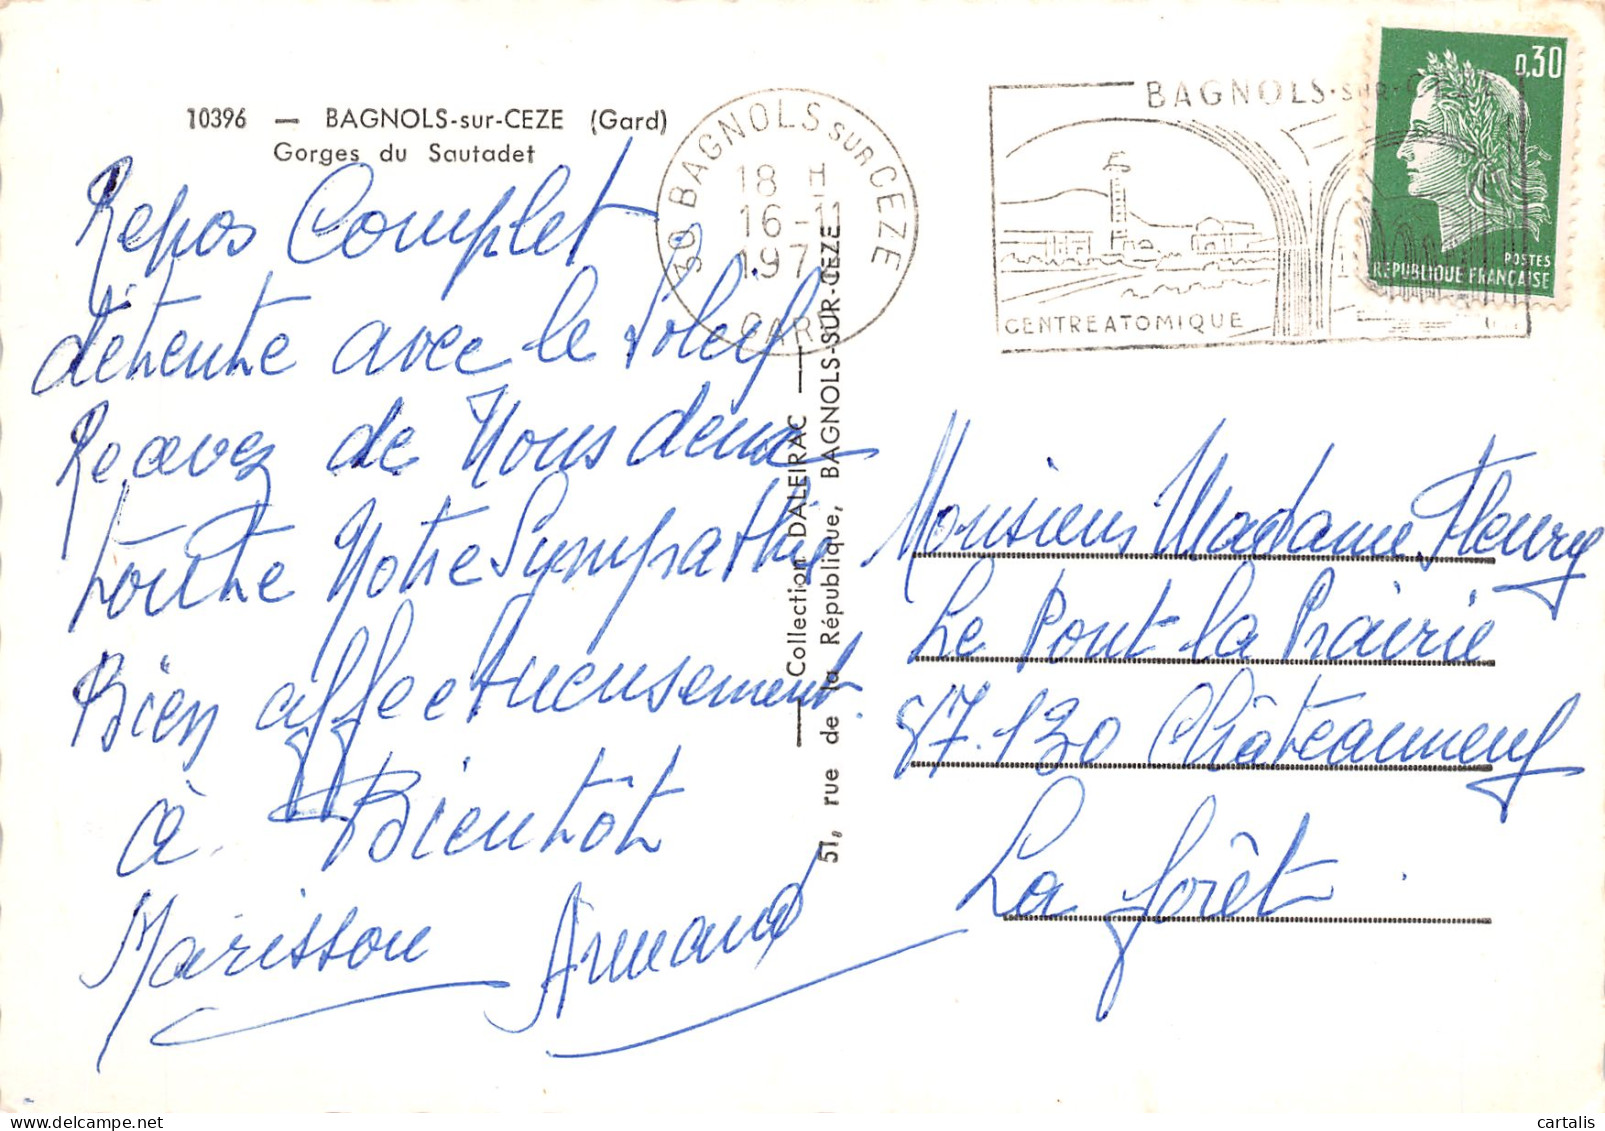 10396 — BAGNOLS-sur-CEZE (Gard)
Gorges du Sautadet
Repos Complet
détente avec le Soleil
Recevez de Nous deux
toute Notre Sympathie
Bien affectueusement.
à Bientôt
Marisson Armand
30 BAGNOLS SUR CEZE
18 H
16-11
197
GARD
BAGNOLS-sur-CEZE
CENTRE ATOMIQUE
0,30
POSTES
REPUBLIQUE FRANÇAISE
— Collection DALEIRAC —
51, rue de la République, BAGNOLS-SUR-CEZE
Monsieur Madame Fleury
Le Pont la Prairie
87.130 Châteauneuf
La forêt.
cartalis